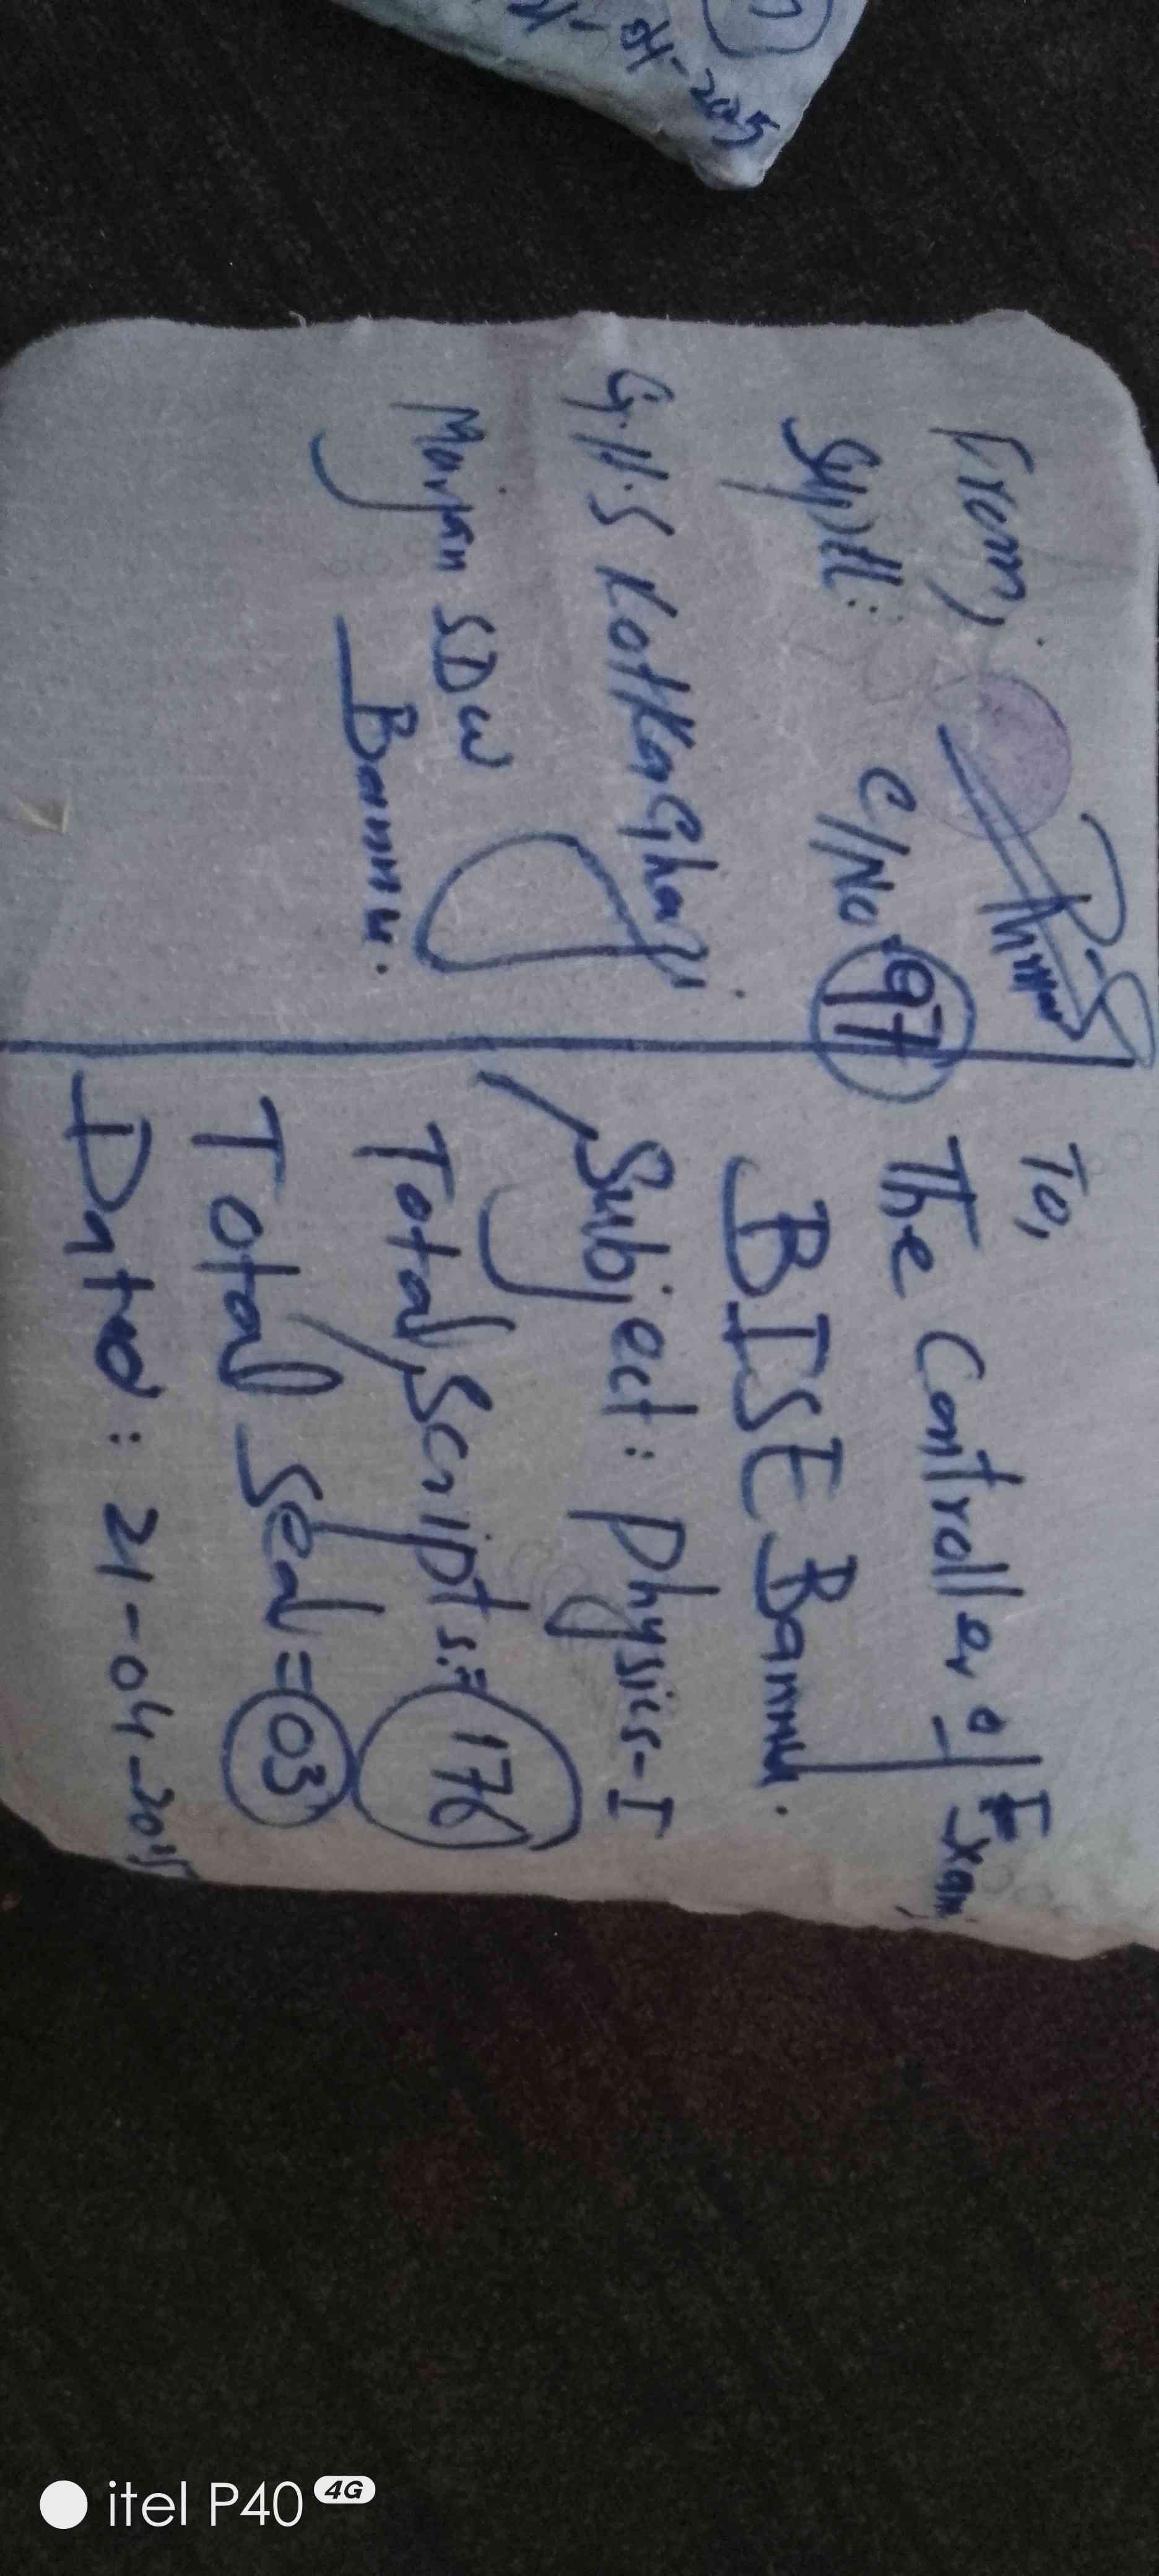 04-2025
From,
Supdt: C/No 97
G.H.S Kotka Ghazi
Maryan SDW
Bannu.
To,
The Controller of Exam,
BISE Bannu.
Subject: Physics-I
Total Scripts:= 176
Total Seal = 03
Dated: 21-04-2025
itel P40 4G